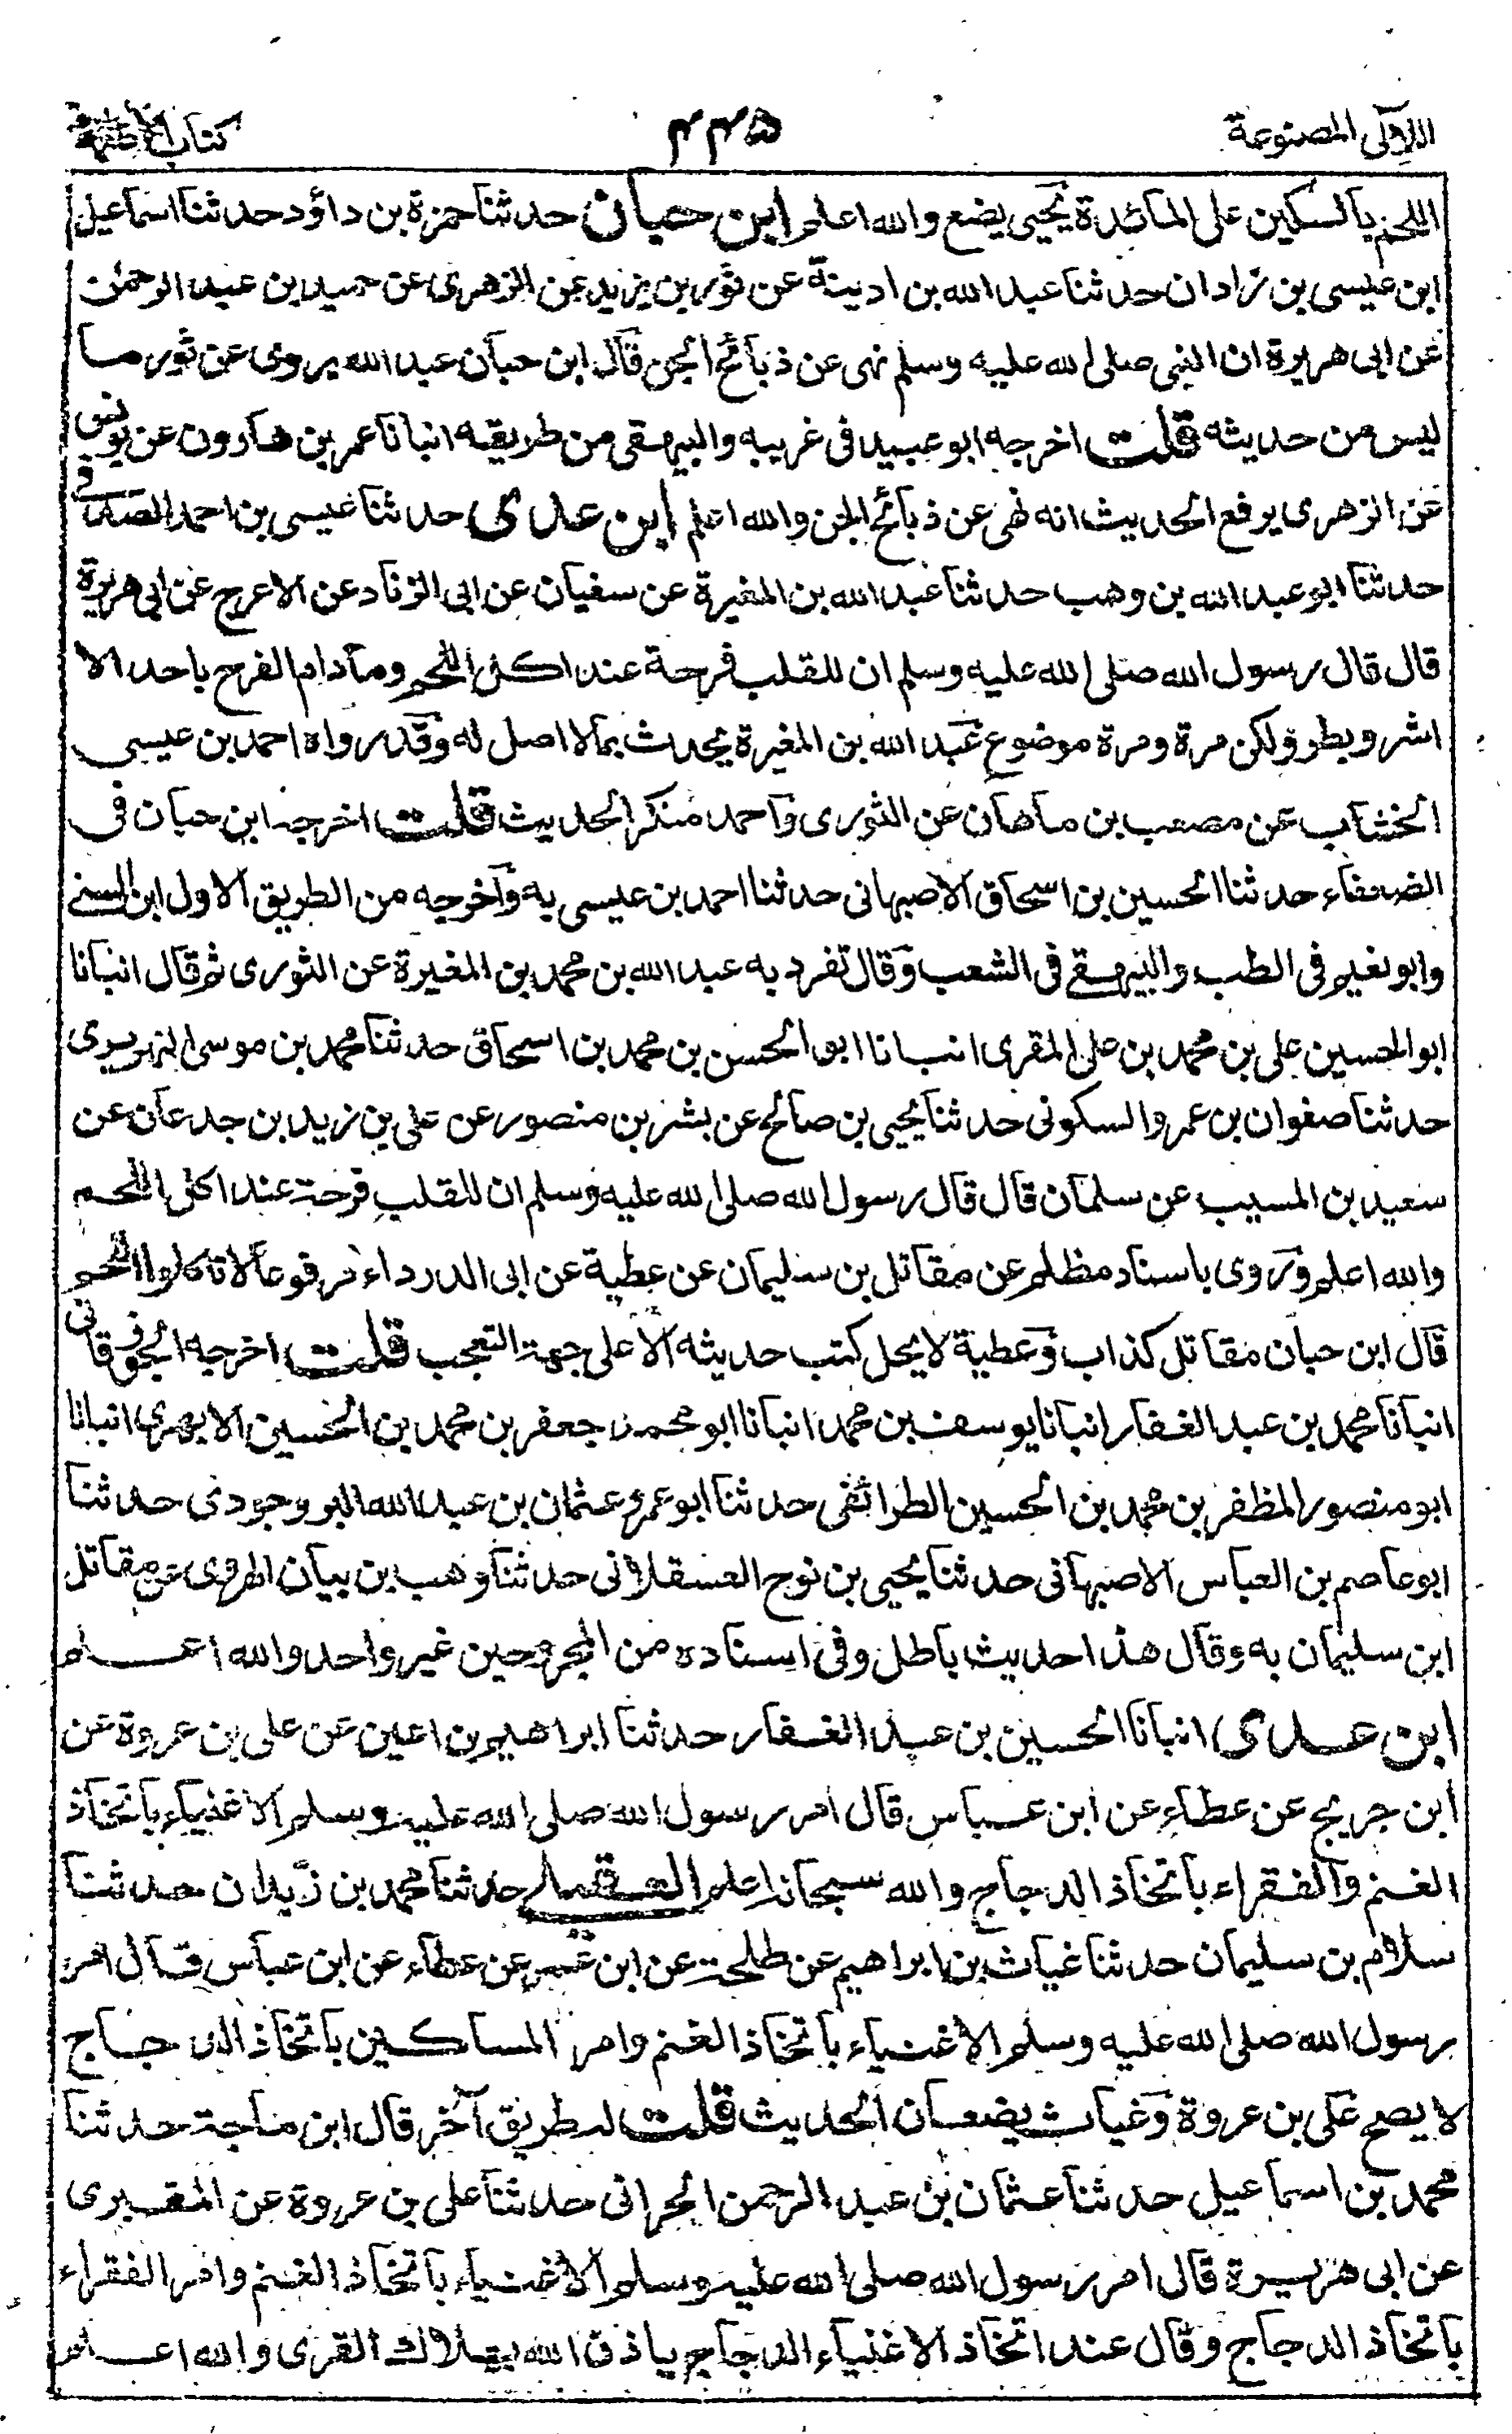 اللآلى المصنوعة
٤٤٥
كتاب الاطعمة
اللحم بالسكين على المائدة يحيى يضع والله اعلم ابن حبان حدثنا حمزة بن داؤد حدثنا اسماعيل
ابن عيسى بن زاذان حدثنا عبد الله بن اذينة عن ثور بن يزيد عن الزهرى عن حميد بن عبد الرحمن
عن ابى هريرة ان النبى صلى الله عليه وسلم نهى عن ذبائح الجن قال ابن حبان عبد الله يروى عن ثور ما
ليس من حديثه قلت اخرجه ابو عبيد فى غريبه والبيهقى من طريقه انبانا عمر بن هارون عن يونس
عن الزهرى يرفع الحديث انه نهى عن ذبائح الجن والله اعلم ابن عدى حدثنا عيسى بن احمد الصدفى
حدثنا ابو عبد الله بن وهب حدثنا عبد الله بن المغيرة عن سفيان عن ابى الزناد عن الاعرج عن ابى هريرة
قال قال رسول الله صلى الله عليه وسلم ان للقلب فرحة عند اكل اللحم وما دام الفرح باحد الا
اشر وبطر ولكن مرة ومرة موضوع عبد الله بن المغيرة يحدث بما لا اصل له وقد رواه احمد بن عيسى
الخشاب عن مصعب بن ماهان عن الثورى واحمد منكر الحديث قلت اخرجه ابن حبان فى
الضعفاء حدثنا الحسين بن اسحاق الاصبهانى حدثنا احمد بن عيسى به واخرجه من الطريق الاول ابن السنى
وابو نعيم فى الطب والبيهقى فى الشعب وقال تفرد به عبد الله بن محمد بن المغيرة عن الثورى ثم قال انبانا
ابو الحسين على بن محمد بن على المقرى انبانا ابو الحسن بن محمد بن اسحاق حدثنا محمد بن موسى النهرتيرى
حدثنا صفوان بن عمرو السكونى حدثنا يحيى بن صالح عن بشر بن منصور عن على بن زيد بن جدعان عن
سعيد بن المسيب عن سلمان قال قال رسول الله صلى الله عليه وسلم ان للقلب فرحة عند اكل اللحم
والله اعلم وروى باسناد مظلم عن مقاتل بن سليمان عن عطية عن ابى الدرداء مرفوعا لا تاكلوا اللحم
قال ابن حبان مقاتل كذاب وعطية لا يحل كتب حديثه الا على جهة التعجب قلت اخرجه الجوزقانى
انبانا محمد بن عبد الغفار انبانا يوسف بن محمد انبانا ابو محمد جعفر بن محمد بن الحسين الابهرى انبانا
ابو منصور المظفر بن محمد بن الحسين الطرائفى حدثنا ابو عمرو عثمان بن عبد الله البروجردى حدثنا
ابو عاصم بن العباس الاصبهانى حدثنا يحيى بن نوح العسقلانى حدثنا وهب بن بيان الهروى عن مقاتل
ابن سليمان به وقال هذا حديث باطل وفى اسناده من المجروحين غير واحد والله اعلم
ابن عدى انبانا الحسين بن عبد الغفار حدثنا ابراهيم بن اعين عن على بن عروة عن
ابن جريج عن عطاء عن ابن عباس قال امر رسول الله صلى الله عليه وسلم الاغنياء باتخاذ
الغنم والفقراء باتخاذ الدجاج والله سبحانه اعلم العقيلى حدثنا محمد بن زيدان حدثنا
سلام بن سليمان حدثنا غياث بن ابراهيم عن طلحة عن ابن عمر عن عطاء عن ابن عباس قال امر
رسول الله صلى الله عليه وسلم الاغنياء باتخاذ الغنم وامر المساكين باتخاذ الدجاج
لا يصح على بن عروة وغياث يضعان الحديث قلت له طريق آخر قال ابن ماجة حدثنا
محمد بن اسماعيل حدثنا عثمان بن عبد الرحمن الحرانى حدثنا على بن عروة عن المقبرى
عن ابى هريرة قال امر رسول الله صلى الله عليه وسلم الاغنياء باتخاذ الغنم وامر الفقراء
باتخاذ الدجاج وقال عند اتخاذ الاغنياء الدجاج ياذن الله بهلاك القرى والله اعلم